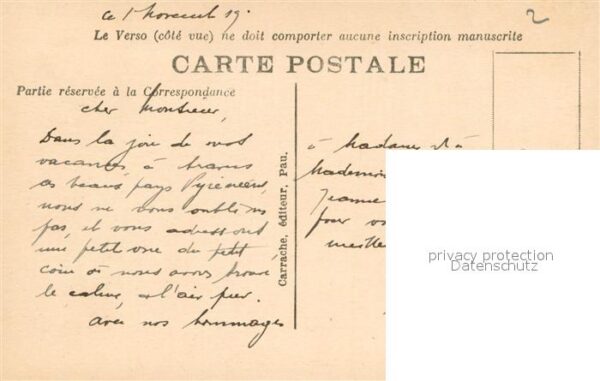 ce 1 Novemb 19
2
Le Verso (côté vue) ne doit comporter aucune inscription manuscrite
CARTE POSTALE
Partie réservée à la Correspondance
cher Monsieur,
Dans la joie de nos
vacances, à travers
ces beaux pays Pyrénéens,
nous ne vous oublions
pas, et vous adressons
une petite vue du petit
coin où nous avons trouvé
le calme, et l'air pur.
avec nos hommages
Carrache, éditeur, Pau.
à Madame et à
Mademoi
Jeanne
pour
meille
privacy protection
Datenschutz